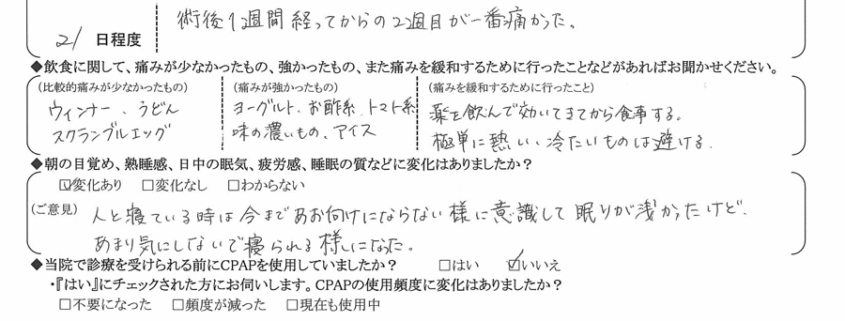 術後1週間経ってからの2週目が一番痛かった。
21 日程度
◆飲食に関して、痛みが少なかったもの、強かったもの、また痛みを緩和するために行ったことなどがあればお聞かせください。
(比較的痛みが少なかったもの)
ウィンナー、うどん
スクランブルエッグ
(痛みが強かったもの)
ヨーグルト、お酢系、トマト系
味の濃いもの、アイス
(痛みを緩和するために行ったこと)
薬を飲んで効いてきてから食事する。
極単に熱い、冷たいものは避ける。
◆朝の目覚め、熟睡感、日中の眠気、疲労感、睡眠の質などに変化はありましたか？
☑変化あり □変化なし □わからない
(ご意見) 人と寝ている時は今まであお向けにならない様に意識して眠りが浅かったけど、
あまり気にしないで寝られる様になった。
◆当院で診療を受けられる前にCPAPを使用していましたか？ □はい ☑いいえ
・『はい』にチェックされた方にお伺いします。CPAPの使用頻度に変化はありましたか？
□不要になった □頻度が減った □現在も使用中